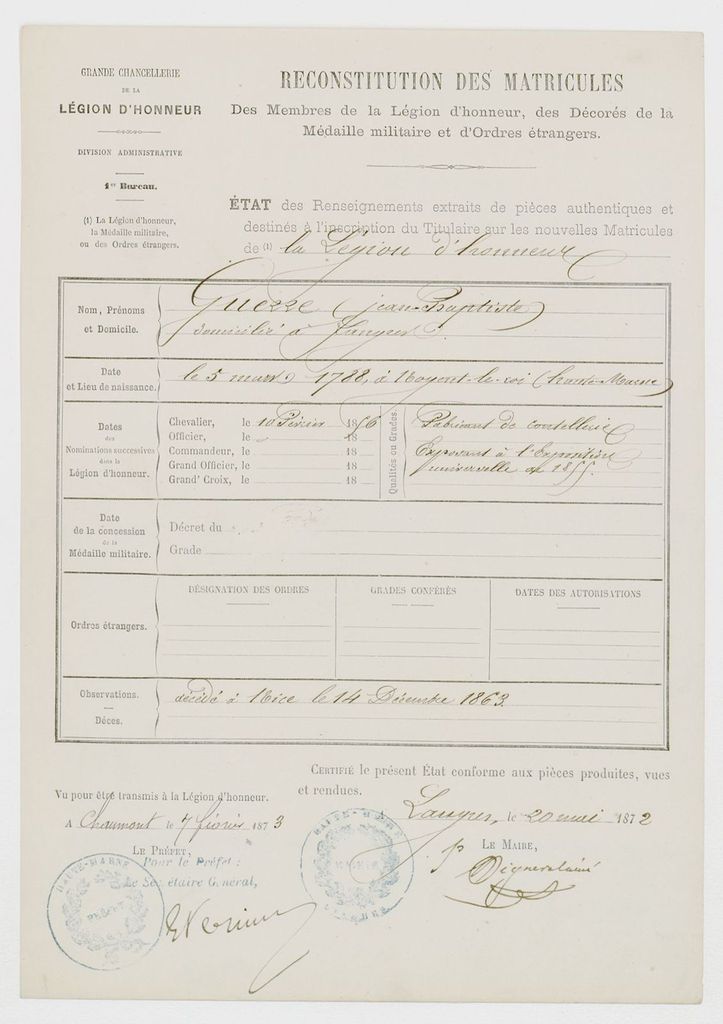 GRANDE CHANCELLERIE
DE LA
LÉGION D'HONNEUR
DIVISION ADMINISTRATIVE
1er Bureau.
(1) La Légion d'honneur,
la Médaille militaire,
ou des Ordres étrangers.
RECONSTITUTION DES MATRICULES
Des Membres de la Légion d'honneur, des Décorés de la
Médaille militaire et d'Ordres étrangers.
ÉTAT des Renseignements extraits de pièces authentiques et
destinés à l'inscription du Titulaire sur les nouvelles Matricules
de (1) la Légion d'honneur
Nom, Prénoms
et Domicile.
Guerre (Jean-Baptiste)
domicilié à Langres
Date
et Lieu de naissance.
le 5 mars 1788, à Nogent-le-roi (haute-Marne)
Dates
des
Nominations successives
dans la
Légion d'honneur.
Chevalier, le 10 Février 1856
Officier, le 18
Commandeur, le 18
Grand Officier, le 18
Grand' Croix, le 18
Qualités ou Grades.
Fabricant de coutellerie
Exposant à l'Exposition
universelle de 1855.
Date
de la concession
de la
Médaille militaire.
Décret du
Grade
Ordres étrangers.
DÉSIGNATION DES ORDRES
GRADES CONFÉRÉS
DATES DES AUTORISATIONS
Observations.
Décès.
décédé à Nice le 14 Décembre 1863.
CERTIFIÉ le présent État conforme aux pièces produites, vues
et rendues.
Langres, le 20 mai 1872
LE MAIRE,
Vu pour être transmis à la Légion d'honneur.
A Chaumont le 7 février 1873
LE PRÉFET,
Pour le Préfet :
Le Secrétaire Général,
HAUTE-MARNE
PRÉFET
HAUTE-MARNE
MAIRIE
LANGRES